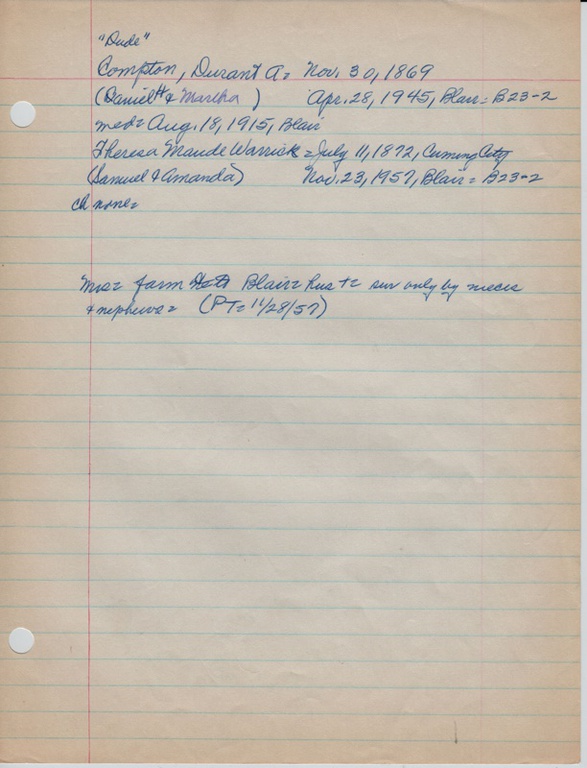 "Dude"
Compton, Durant A= Nov. 30, 1869
(Daniel H & Martha ) Apr. 28, 1945, Blair = B23-2
med= Aug. 18, 1915, Blair
Theresa Maude Warrick = July 11, 1872, Cuming City
(Samuel & Amanda) Nov. 23, 1957, Blair = B23-2
ch none=
Mrs= farm Blair= hus += sur only by nieces
& nephews= (PT= 11/28/57)